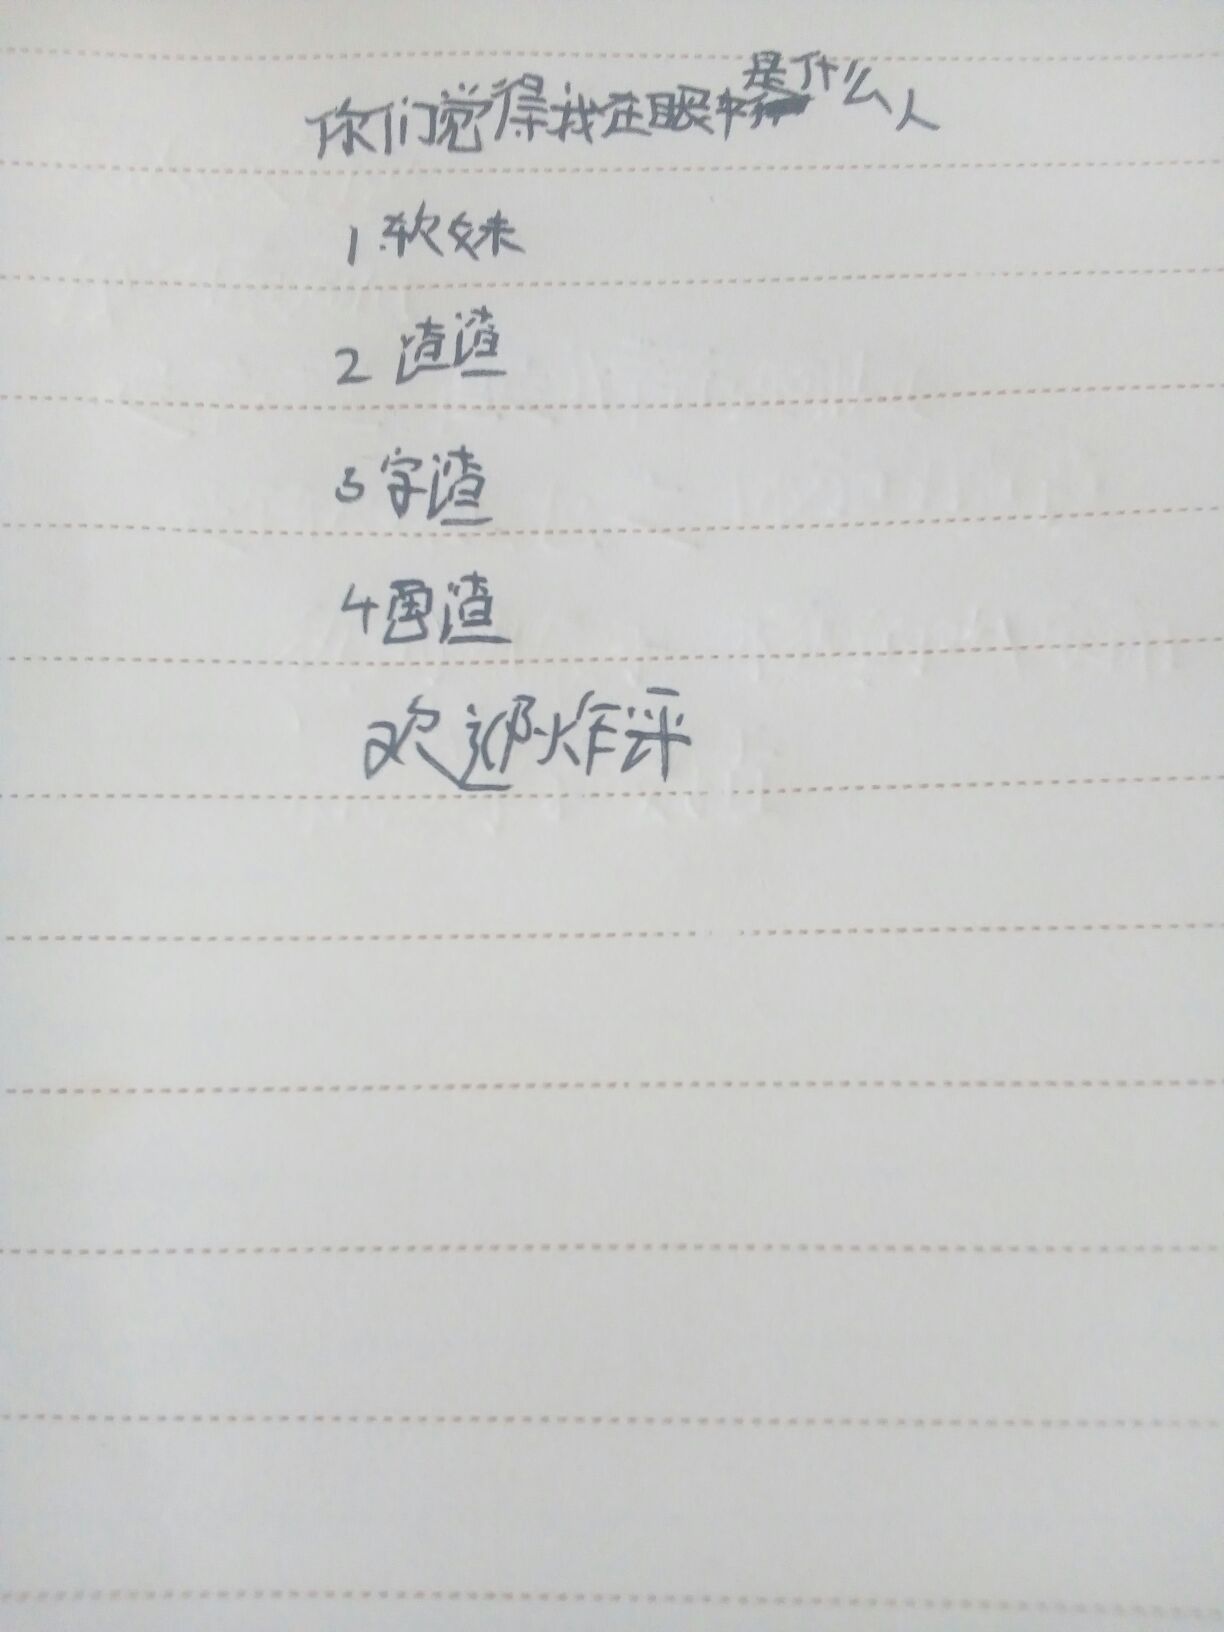 你们觉得我在眼中是什么人
1.软妹
2 渣渣
3 字渣
4 画渣
欢迎炸评